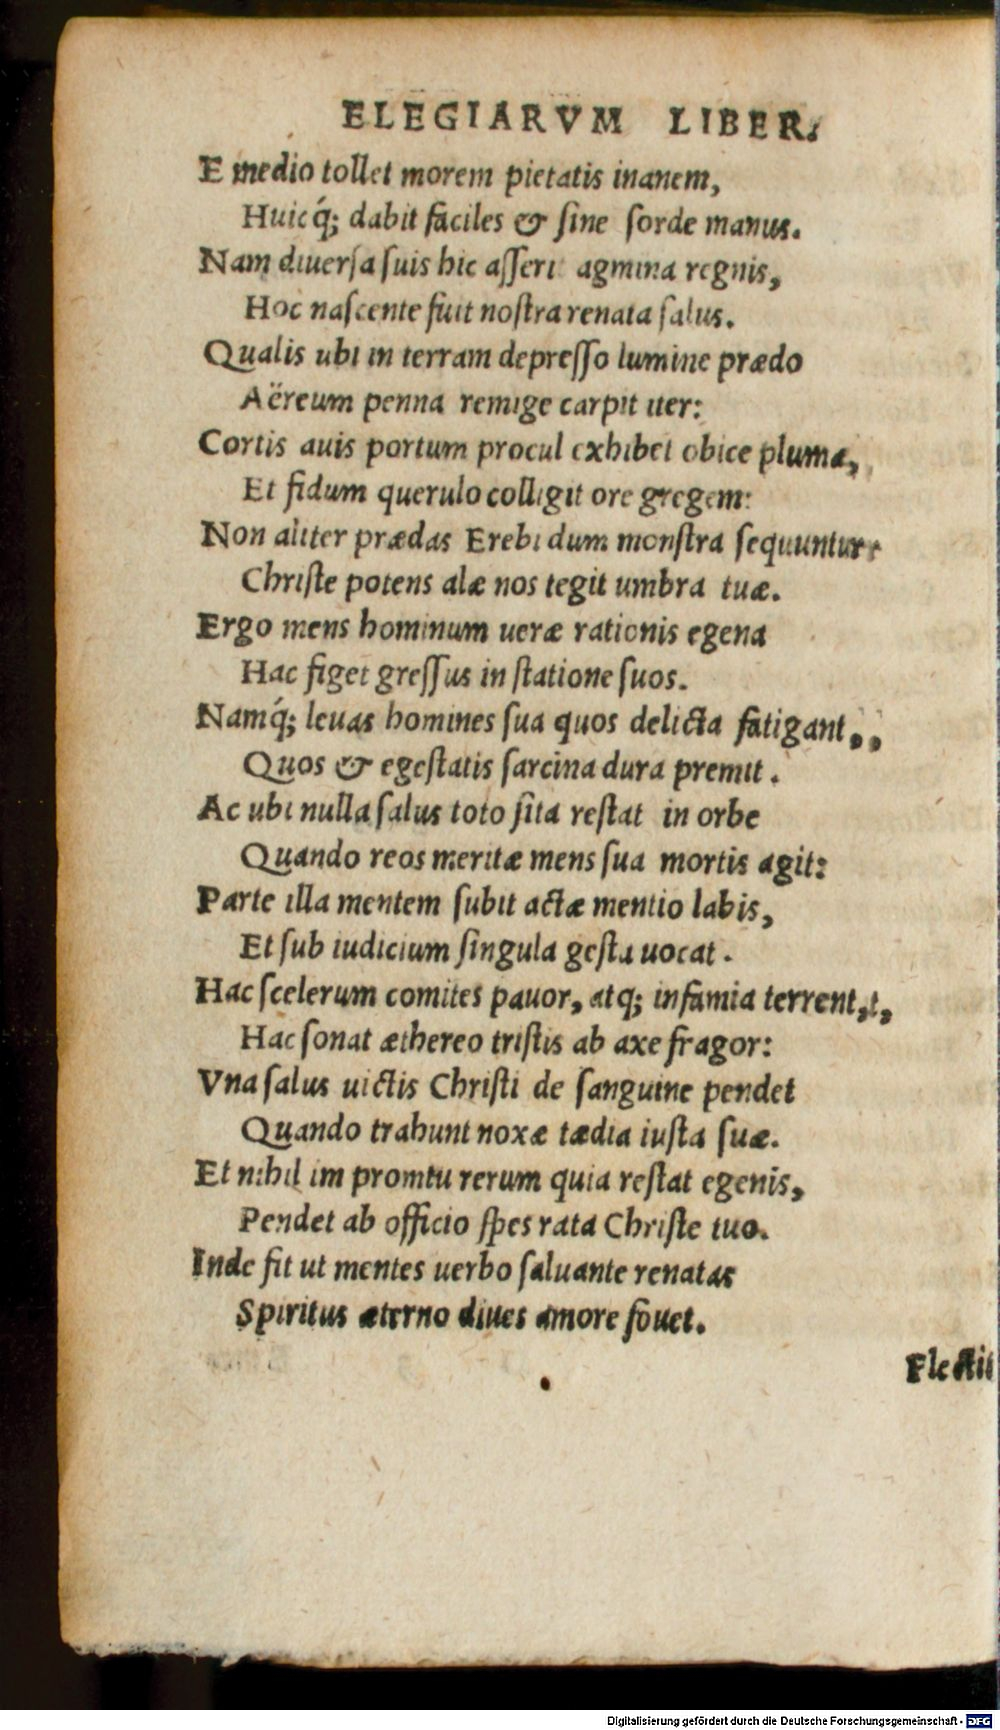 ELEGIARVM LIBER.
E medio tollet morem pietatis inanem,
Huicq́; dabit faciles & ſine ſorde manus.
Nam diuerſa ſuis hic aſſeri agmina regnis,
Hoc naſcente fuit noſtra renata ſalus.
Qualis ubi in terram depreſſo lumine prædo
Aëreum penna remige carpit iter:
Cortis auis portum procul exhibet obice pluma,
Et fidum querulo colligit ore gregem:
Non aliter prædas Erebi dum monſtra ſequuntur
Chriſte potens alæ nos tegit umbra tuæ.
Ergo mens hominum ueræ rationis egena
Hac figet greſſus in ſtatione ſuos.
Namq́; leuas homines ſua quos delicta fatigant,,
Quos & egeſtatis ſarcina dura premit.
Ac ubi nulla ſalus toto ſita reſtat in orbe
Quando reos meritæ mens ſua mortis agit:
Parte illa mentem ſubit actæ mentio labis,
Et ſub iudicium ſingula geſta uocat.
Hac ſcelerum comites pauor, atq; infamia terrent,t,
Hac ſonat æthereo triſtis ab axe fragor:
Vna ſalus uictis Chriſti de ſanguine pendet
Quando trahunt noxæ tædia iuſta ſuæ.
Et nihil im promtu rerum quia reſtat egenis,
Pendet ab officio ſpes rata Chriſte tuo.
Inde fit ut mentes uerbo ſaluante renatas
Spiritus æterno diues amore fouet.
Flectit
Digitalisierung gefördert durch die Deutsche Forschungsgemeinschaft - DFG